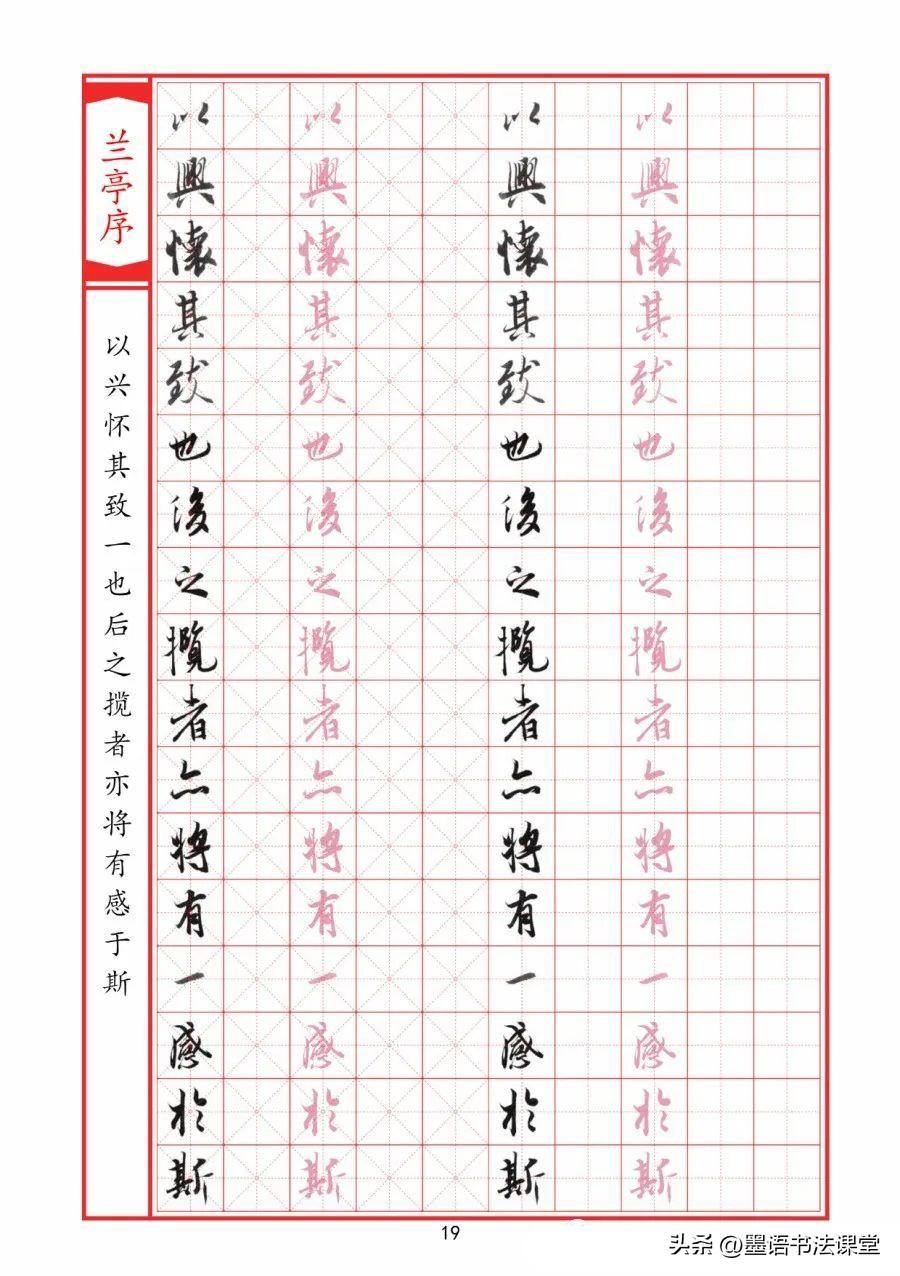 兰亭序
以兴怀其致一也后之揽者亦将有感于斯
以興懷其致也後之攬者亦將有一感於斯
以興懷其致也後之攬者亦將有一感於斯
以興懷其致也後之攬者亦將有一感於斯
以興懷其致也後之攬者亦將有一感於斯
19
头条 @墨语书法课堂